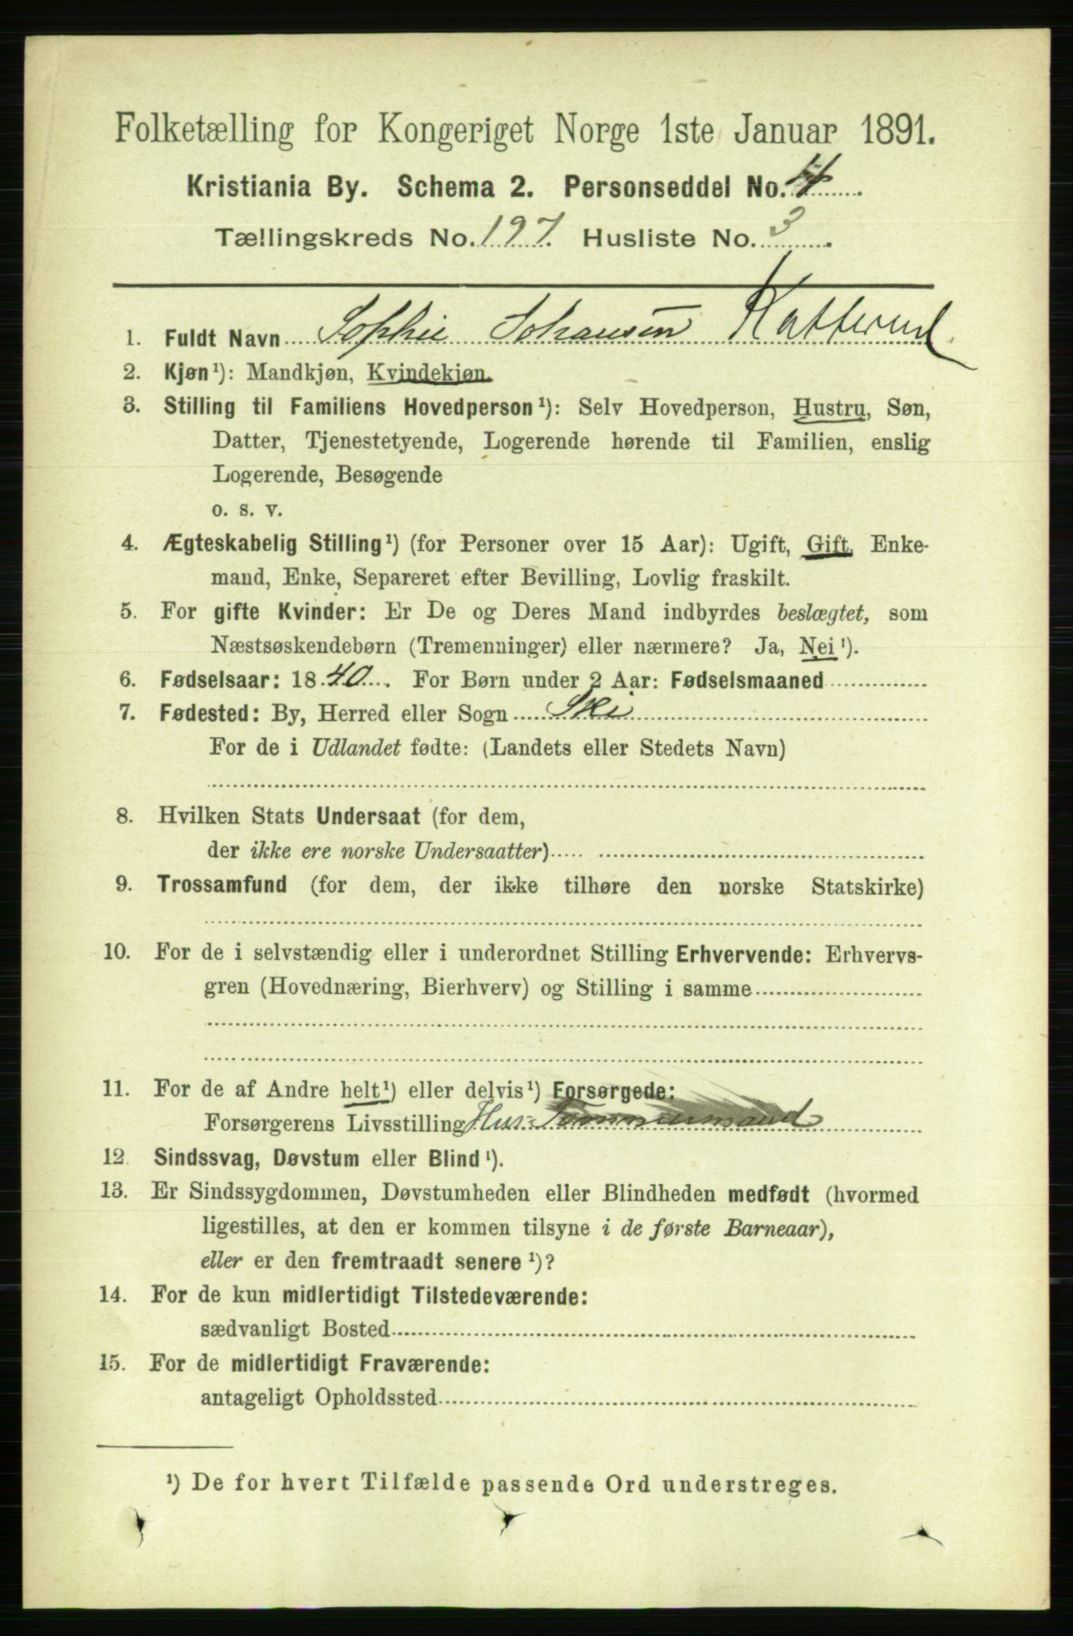 Folketælling for Kongeriget Norge 1ste Januar 1891.
Kristiania By. Schema 2. Personseddel No. 4
Tællingskreds No. 197. Husliste No. 3.
1. Fuldt Navn Sophie Johansen Katterud
2. Kjøn¹): Mandkjøn, Kvindekjøn.
3. Stilling til Familiens Hovedperson¹): Selv Hovedperson, Hustru, Søn,
Datter, Tjenestetyende, Logerende hørende til Familien, enslig
Logerende, Besøgende
o. s. v.
4. Ægteskabelig Stilling¹) (for Personer over 15 Aar): Ugift, Gift, Enke-
mand, Enke, Separeret efter Bevilling, Lovlig fraskilt.
5. For gifte Kvinder: Er De og Deres Mand indbyrdes beslægtet, som
Næstsøskendebørn (Tremenninger) eller nærmere? Ja, Nei¹).
6. Fødselsaar: 1840. For Børn under 2 Aar: Fødselsmaaned
7. Fødested: By, Herred eller Sogn Ski
For de i Udlandet fødte: (Landets eller Stedets Navn)
8. Hvilken Stats Undersaat (for dem,
der ikke ere norske Undersaatter)
9. Trossamfund (for dem, der ikke tilhøre den norske Statskirke)
10. For de i selvstændig eller i underordnet Stilling Erhvervende: Erhvervs-
gren (Hovednæring, Bierhverv) og Stilling i samme
11. For de af Andre helt¹) eller delvis¹) Forsørgede:
Forsørgerens Livsstilling Hus-Tømmermand
12. Sindssvag, Døvstum eller Blind¹).
13. Er Sindssygdommen, Døvstumheden eller Blindheden medfødt (hvormed
ligestilles, at den er kommen tilsyne i de første Barneaar),
eller er den fremtraadt senere¹)?
14. For de kun midlertidigt Tilstedeværende:
sædvanligt Bosted
15. For de midlertidigt Fraværende:
antageligt Opholdssted
¹) De for hvert Tilfælde passende Ord understreges.